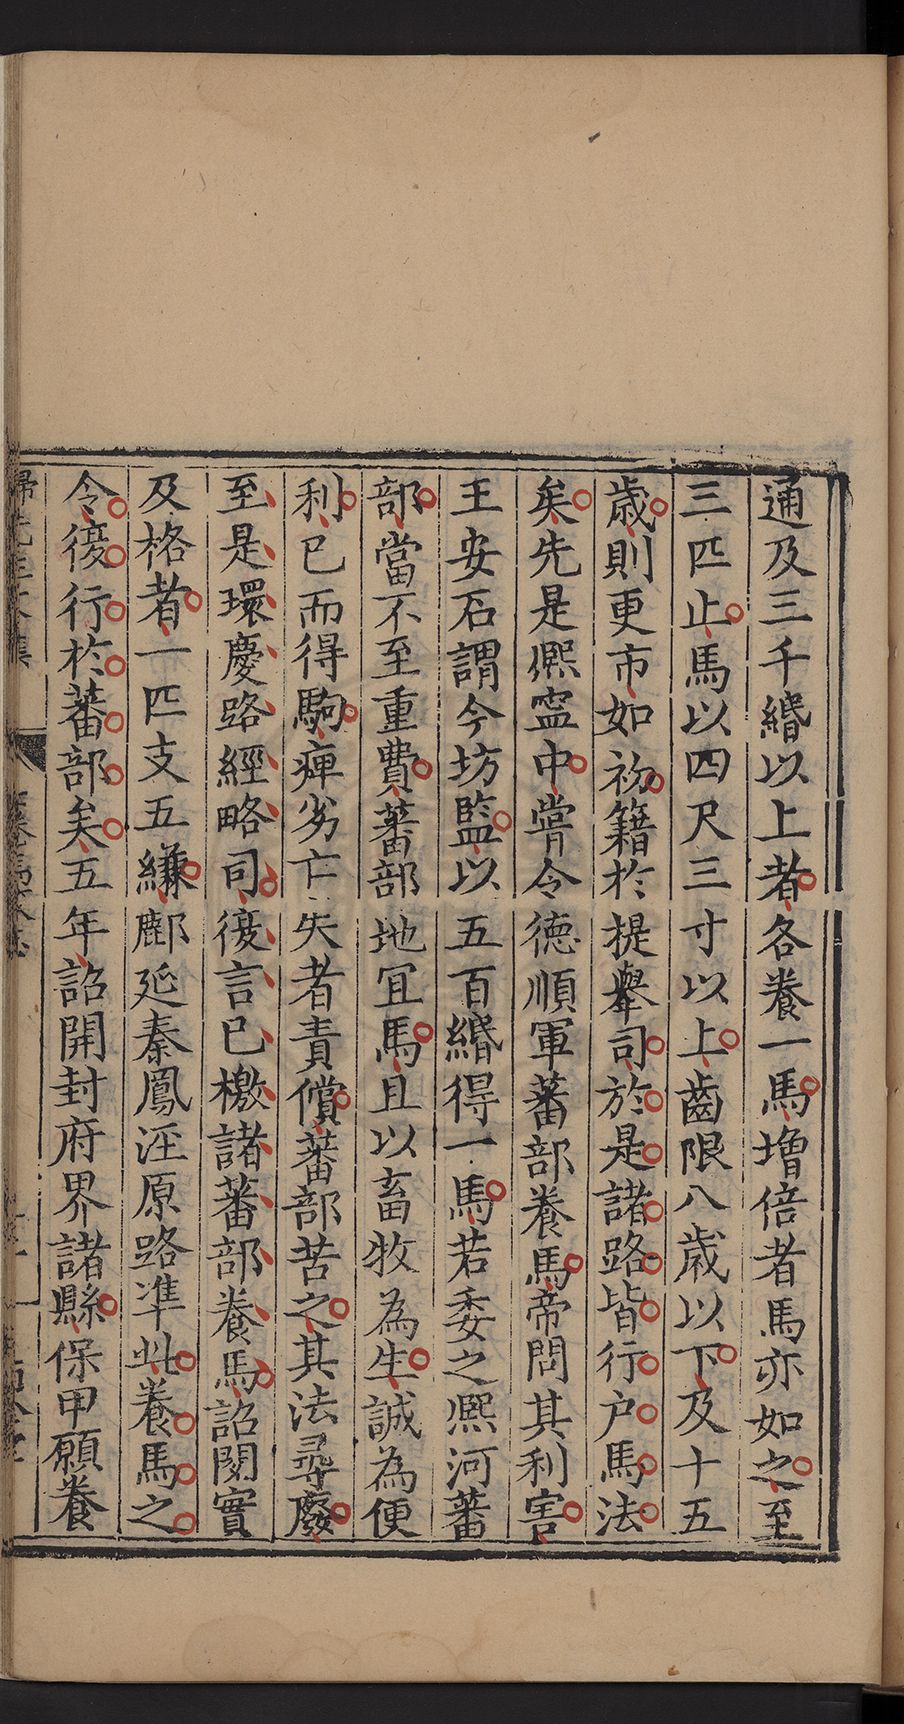 通及三千緡以上者各養一馬增倍者馬亦如之至
三匹止馬以四尺三寸以上齒限八歲以下及十五
歲則更市如初籍於提舉司於是諸路皆行户馬法
矣先是熙寧中嘗令德順軍蕃部養馬帝問其利害
王安石謂今坊監以五百緡得一馬若委之熙河蕃
部當不至重費蕃部地宜馬且以畜牧為生誠為便
利已而得駒痺劣亡失者責償蕃部苦之其法尋廢
至是環慶路經略司復言已檄諸蕃部養馬詔閱實
及格者一匹支五縑鄜延秦鳳涇原路準此養馬之
令復行於蕃部矣五年詔開封府界諸縣保甲願養